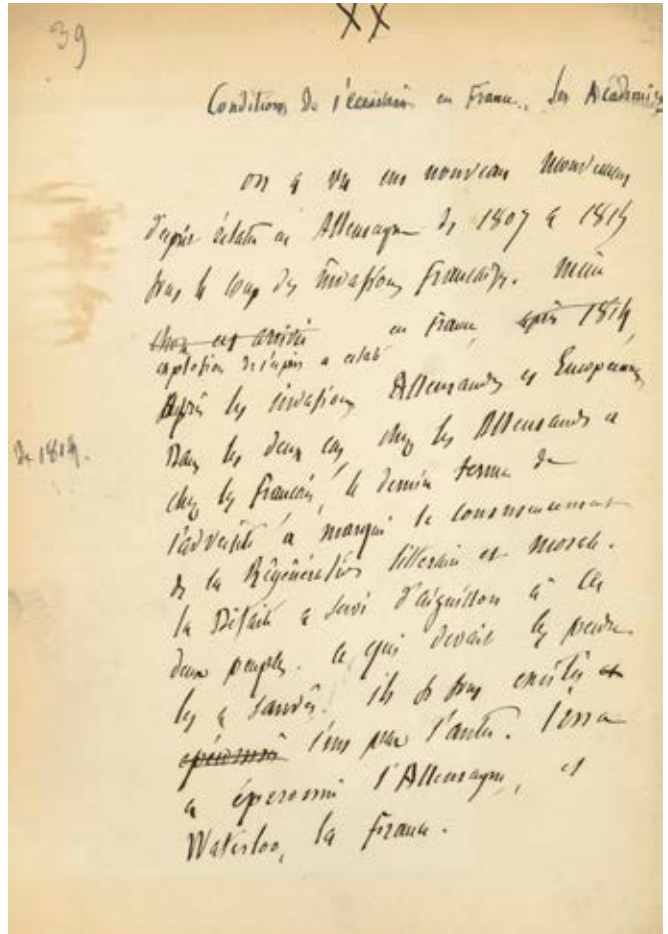 39
XX
Conditions de l'écrivain en France. Les Académies
on a vu un nouveau mouvement
d'esprit éclater en Allemagne de 1807 à 1815
sous le coup des invasions françaises. même
chose est arrivée en France après 1815
explosion de l'esprit a éclaté
Après les invasions Allemandes et Européennes
de 1815.
Dans les deux cas, chez les Allemands et
chez les français, le dernier terme de
l'adversité a marqué le commencement
de la Régénération littéraire et morale.
la Défaite a servi d'aiguillon à ces
deux peuples. ce qui devait les perdre
les a sauvés. ils se sont excités et
éperonnés l'un par l'autre. Iéna
a éperonné l'Allemagne, et
Waterloo, la France.